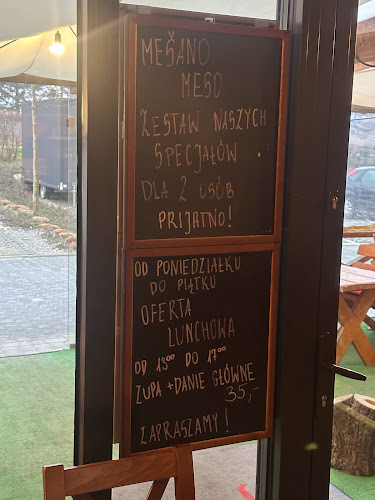 MEŠANO
MESO
ZESTAW NASZYCH
SPECJAŁÓW
DLA 2 OSÓB
PRIJATNO!
OD PONIEDZIAŁKU
DO PIĄTKU
OFERTA
LUNCHOWA
OD 13⁰⁰ DO 17⁰⁰
ZUPA + DANIE GŁÓWNE
35,-
ZAPRASZAMY!